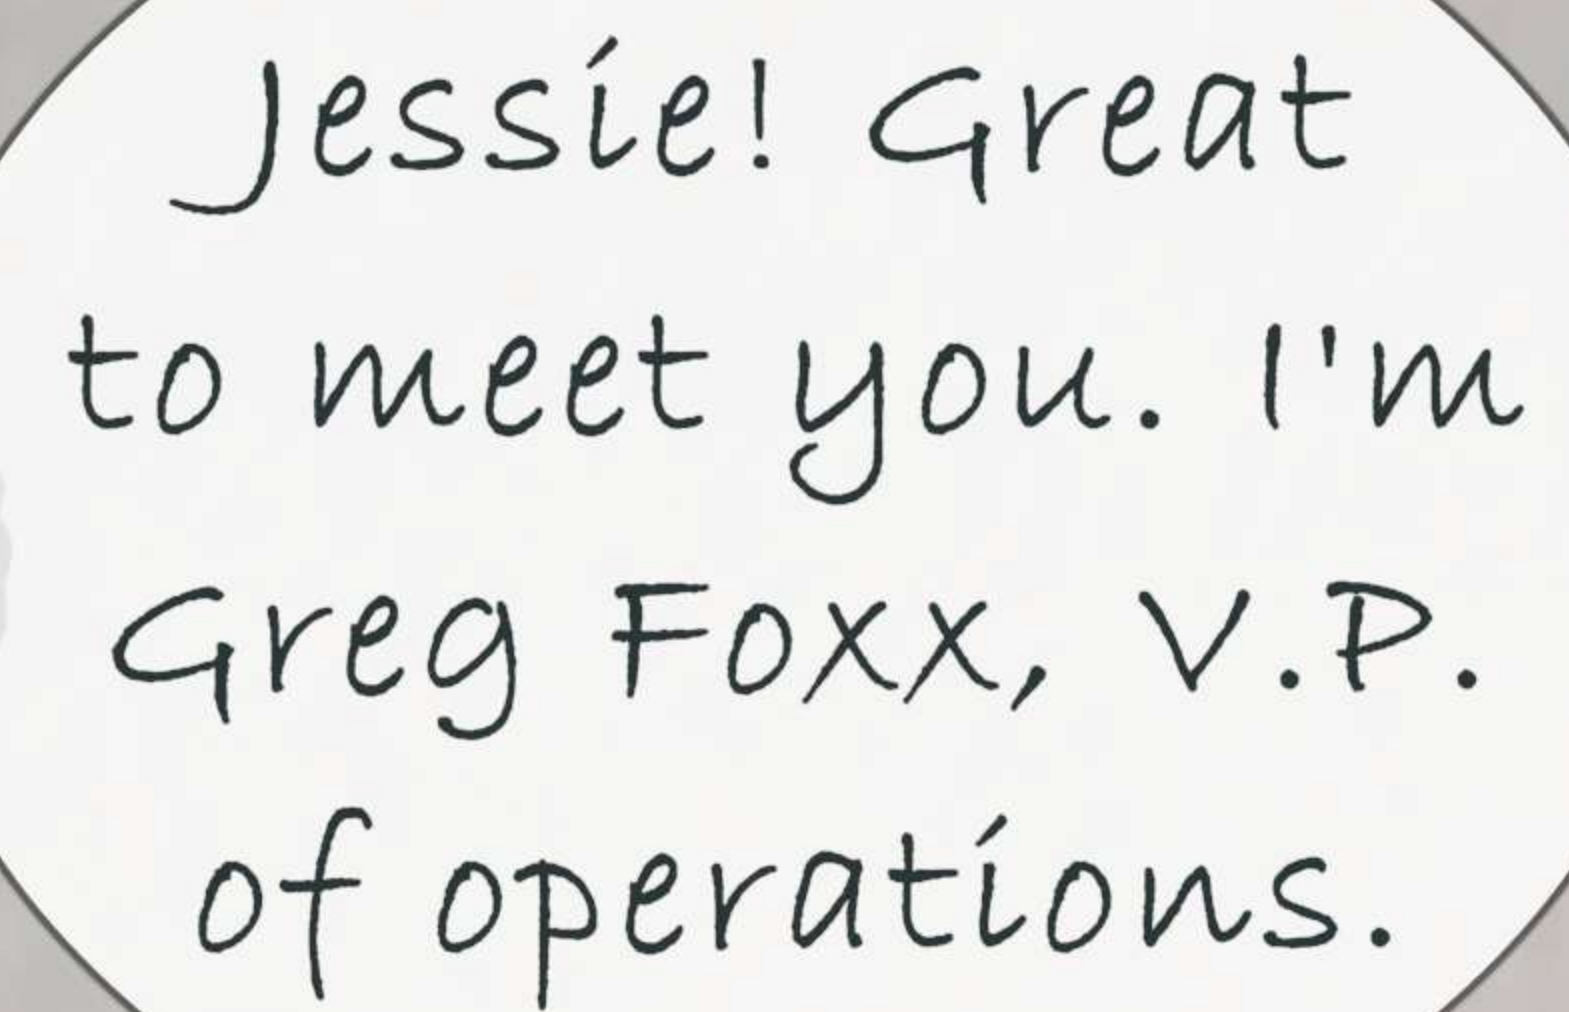 Jessie! Great
to meet you. I'm
Greg Foxx, V.P.
of operations.